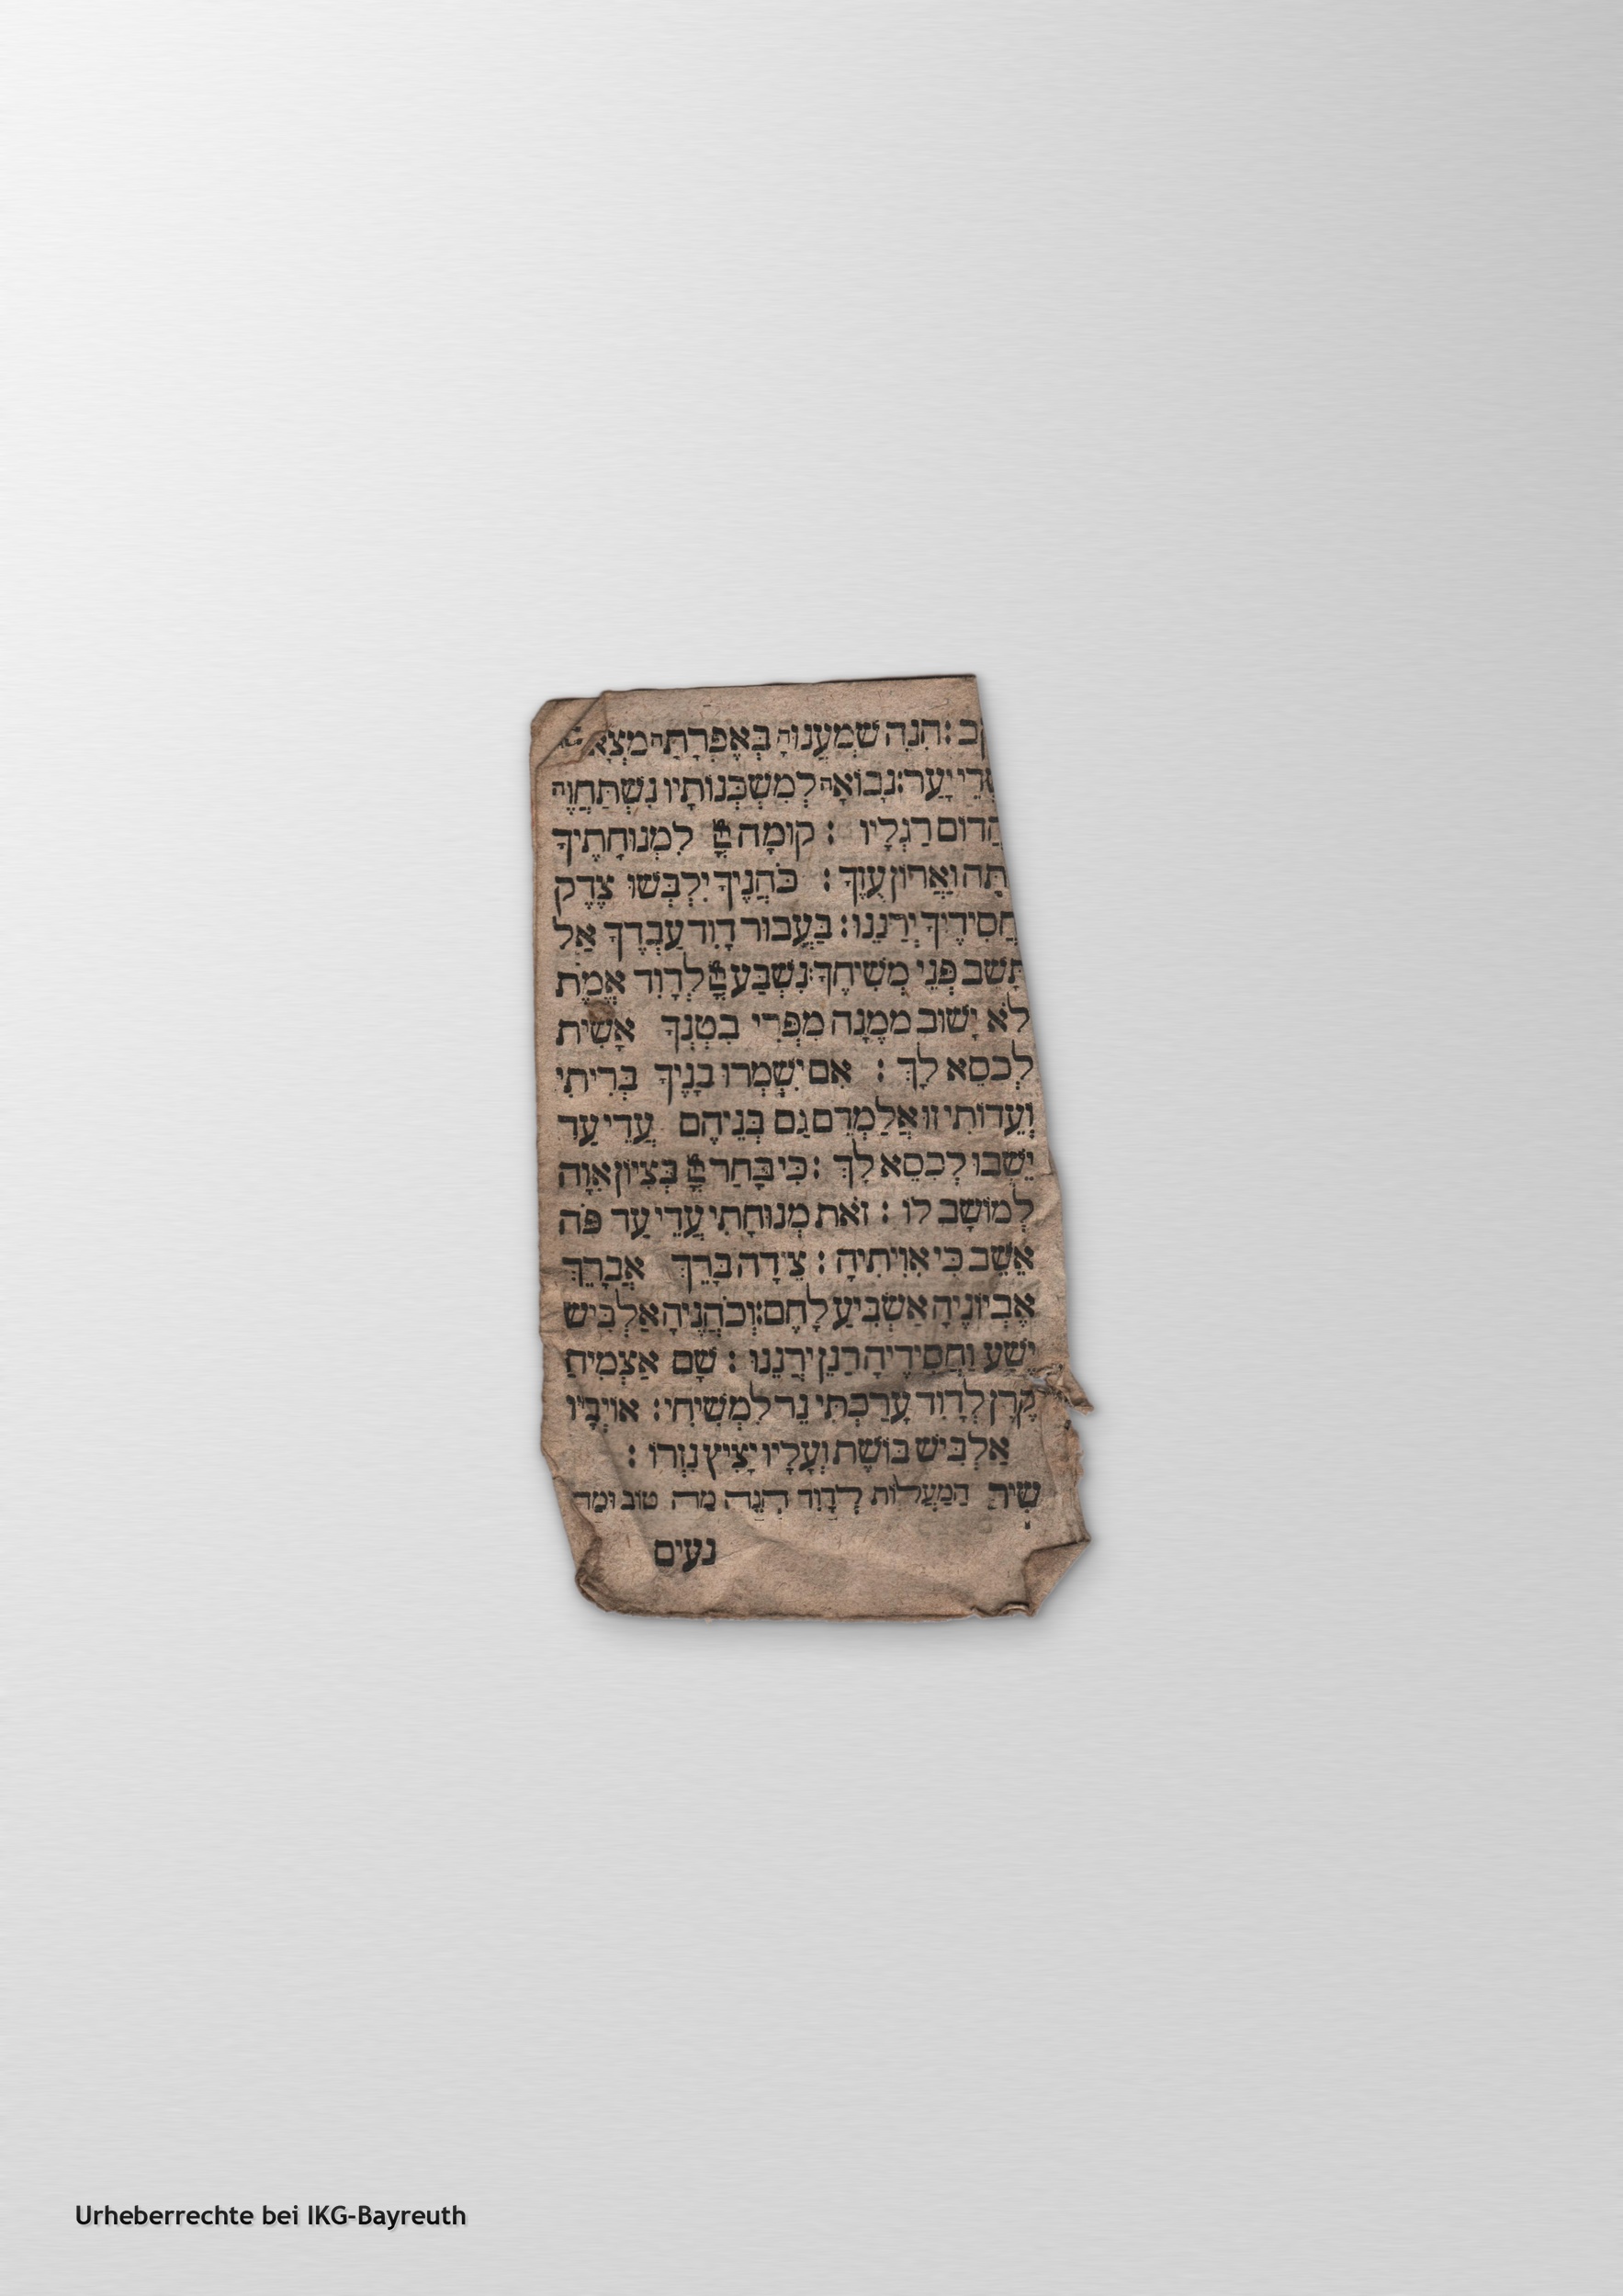 הִנֵּה שְׁמַעֲנוּהָ בְּאֶפְרָתָה
יָעַר׃ נָבוֹאָה לְמִשְׁכְּנוֹתָיו נִשְׁתַּחֲוֶה
רַגְלָיו : קוּמָה לִמְנוּחָתֶיךָ
וַאֲרוֹן עֻזֶּךָ : כֹּהֲנֶיךָ יִלְבְּשׁוּ צֶדֶק
יְרַנֵּנוּ : בַּעֲבוּר דָּוִד עַבְדֶּךָ אַל
תָּשֵׁב פְּנֵי מְשִׁיחֶךָ : נִשְׁבַּע לְדָוִד אֱמֶת
לֹא יָשׁוּב מִמֶּנָּה מִפְּרִי בִטְנְךָ אָשִׁית
לְכִסֵּא לָךְ : אִם יִשְׁמְרוּ בָנֶיךָ בְּרִיתִי
וְעֵדוֹתִי זוֹ אֲלַמְּדֵם גַּם בְּנֵיהֶם עֲדֵי עַד
יֵשְׁבוּ לְכִסֵּא לָךְ : כִּי בָחַר בְּצִיּוֹן אִוָּהּ
לְמוֹשָׁב לוֹ : זֹאת מְנוּחָתִי עֲדֵי עַד פֹּה
אֵשֵׁב כִּי אִוִּיתִיהָ : צֵידָהּ בָּרֵךְ אֲבָרֵךְ
אֶבְיוֹנֶיהָ אַשְׂבִּיעַ לָחֶם : וְכֹהֲנֶיהָ אַלְבִּישׁ
יֶשַׁע וַחֲסִידֶיהָ רַנֵּן יְרַנֵּנוּ : שָׁם אַצְמִיחַ
קֶרֶן לְדָוִד עָרַכְתִּי נֵר לִמְשִׁיחִי : אוֹיְבָיו
אַלְבִּישׁ בּוֹשֶׁת וְעָלָיו יָצִיץ נִזְרוֹ :
שִׁיר הַמַּעֲלוֹת לְדָוִד הִנֵּה מַה טּוֹב וּמַה
נעים
Urheberrechte bei IKG-Bayreuth